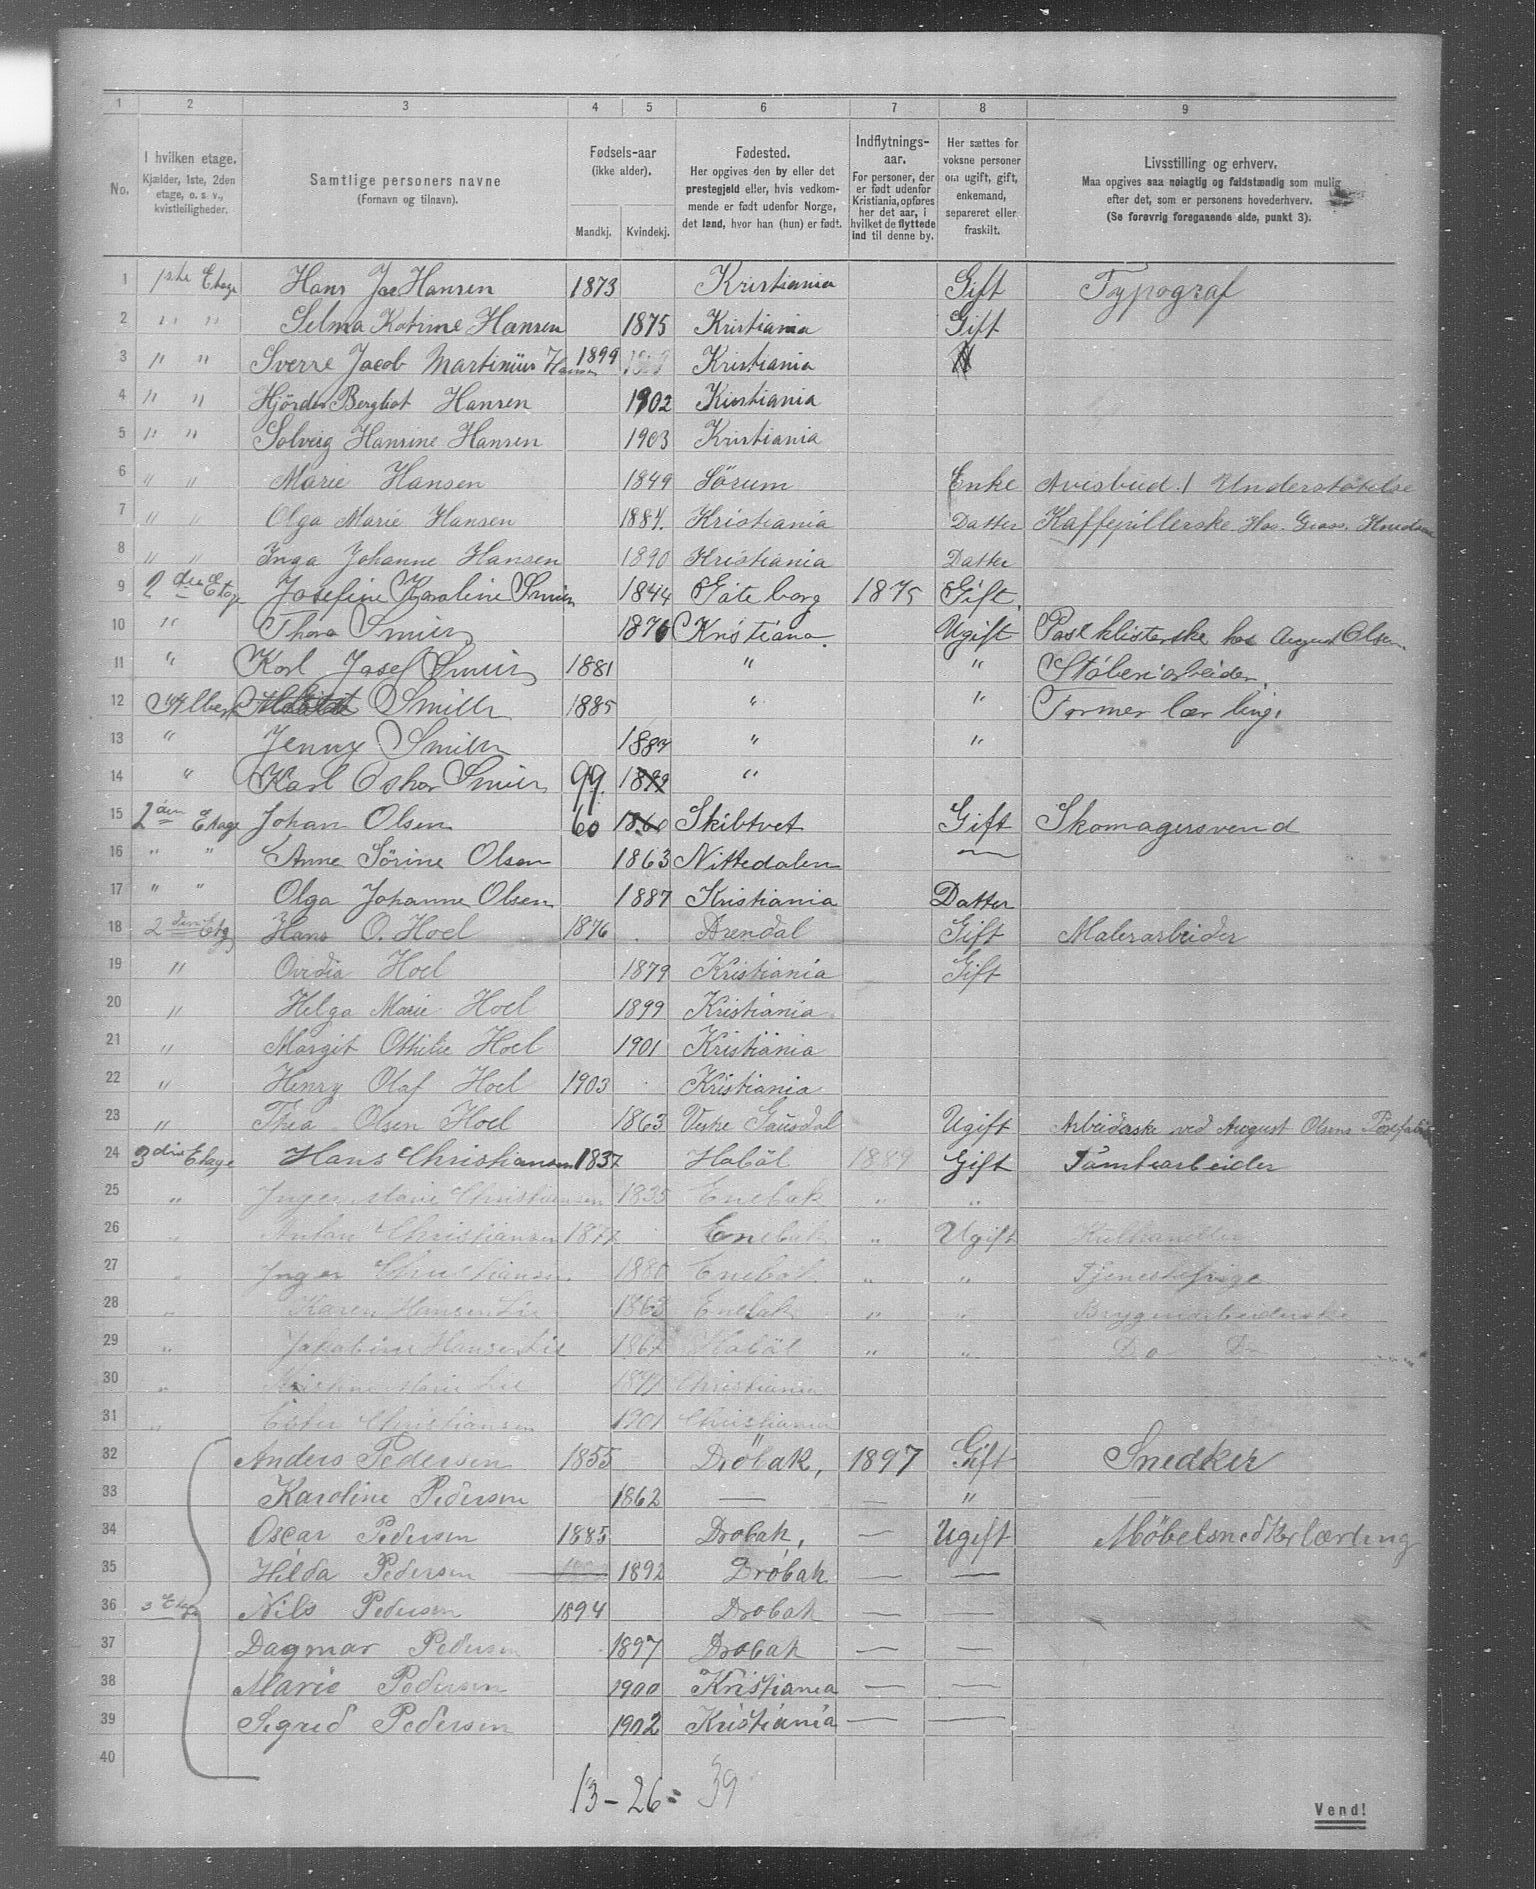 1 2 3 4 5 6 7 8 9
No.
I hvilken etage.
Kjælder, 1ste, 2den
etage, o. s. v.,
kvistleiligheder.
Samtlige personers navne
(Fornavn og tilnavn).
Fødsels-aar
(ikke alder).
Mandkj. Kvindekj.
Fødested.
Her opgives den by eller det
prestegjeld eller, hvis vedkom-
mende er født udenfor Norge,
det land, hvor han (hun) er født.
Indflytnings-
aar.
For personer, der
er født udenfor
Kristiania, opføres
her det aar, i
hvilket de flyttede
ind til denne by.
Her sættes for
voksne personer
om ugift, gift,
enkemand,
separeret eller
fraskilt.
Livsstilling og erhverv.
Maa opgives saa nøiagtig og fuldstændig som mulig
efter det, som er personens hovederhverv.
(Se forøvrig foregaaende side, punkt 3).
1 1ste Etage Hans Jac Hansen 1873 Kristiania Gift Typograf
2 " " Selma Katrine Hansen 1875 Kristiania Gift
3 " " Sverre Jacob Martinius Hansen 1899 Kristiania
4 " " Hjördis Bergliot Hansen 1902 Kristiania
5 " " Solveig Hansine Hansen 1903 Kristiania
6 " " Marie Hansen 1849 Sörum Enke Avisbud. / Understötelse
7 " " Olga Marie Hansen 1884. Kristiania Datter Kaffepillerske Hos. Gross.
8 " " Inga Johanne Hansen 1890 Kristiania Datter
9 2den Etage Josefine Karoline Smith 1844 Göteborg 1875 Gift.
10 " Thora Smith 1876 Kristiana. Ugift Poseklisterske hos August Olsen.
11 " Karl Josef Smith 1881 " " Støberiarbeider.
12 Albert Smith 1885 " " Formerlærling.
13 " Jenny Smith 1887 " "
14 " Karl Oskar Smith 99. 1899 "
15 2den Etage Johan Olsen 60 1860 Skibtvet Gift Skomagersvend
16 " " Anne Sörine Olsen 1863 Nittedalen —
17 " " Olga Johanne Olsen 1887 Kristiania Datter
18 2den Etg Hans O. Hoel 1876 Arendal Gift Malerarbeider
19 " Ovidia Hoel 1879 Kristiania Gift
20 " Helga Marie Hoel 1899 Kristiania
21 " Margit Othilie Hoel 1901 Kristiania
22 " Henry Olaf Hoel 1903 Kristiania
23 " Thea Olsen Hoel 1863 Vestre Gausdal Ugift Arbeiderske ved August Olsens
24 3die Etage Hans Christiansen 1837 Haböl 1889 Gift Tömtearbeider
25 " Inger Marie Christiansen 1835 Enebak " "
26 " Anton Christiansen 1877 Enebak " Ugift Kulhandler
27 " Inger Christiansen. 1880 Enebak " " Tjenestepige
28 " Karen Hansen Lie 1863 Enebak " " Bryggeriarbeiderske
29 " Jakobine Hansen Lie 1867 Haböl " " Do Do
30 " Marie Lie Christiania
31 " Ester Christiansen 1901 Christiania
32 Anders Pedersen 1855 Dröbak, 1897 Gift Snedker
33 Karoline Pedersen 1862 — — "
34 Oscar Pedersen 1885 Drobak, — Ugift Möbelsnedkerlærling
35 Hilda Pedersen 1892 Drobak — —
36 3 Etage Nils Pedersen 1894 Drobak — —
37 Dagmar Pedersen 1897 Drobak — —
38 Marie Pedersen 1900 Kristiania — —
39 Sigrid Pedersen 1902 Kristiania — —
40
13 - 26 = 39
Vend!